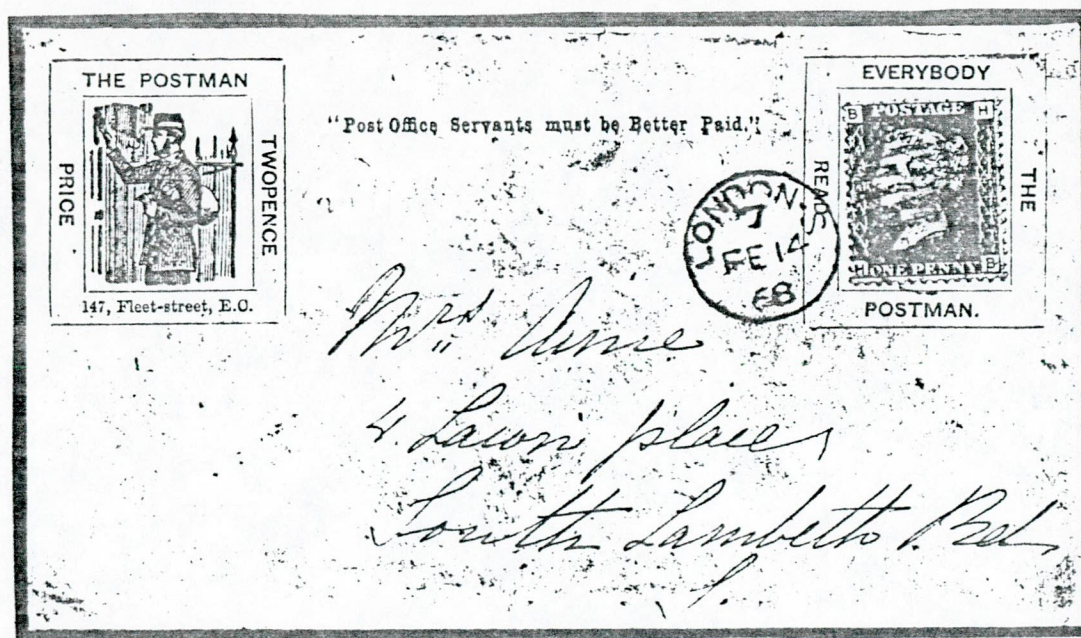 THE POSTMAN
PRICE
TWOPENCE
147, Fleet-street, E.C.
"Post Office Servants must be Better Paid."
EVERYBODY
READS
THE
POSTMAN.
B POSTAGE H
H ONE PENNY B
LONDON. S
7
FE 14
68
Mrs
4. Lawn place,
South Lambeth Rd.
S.